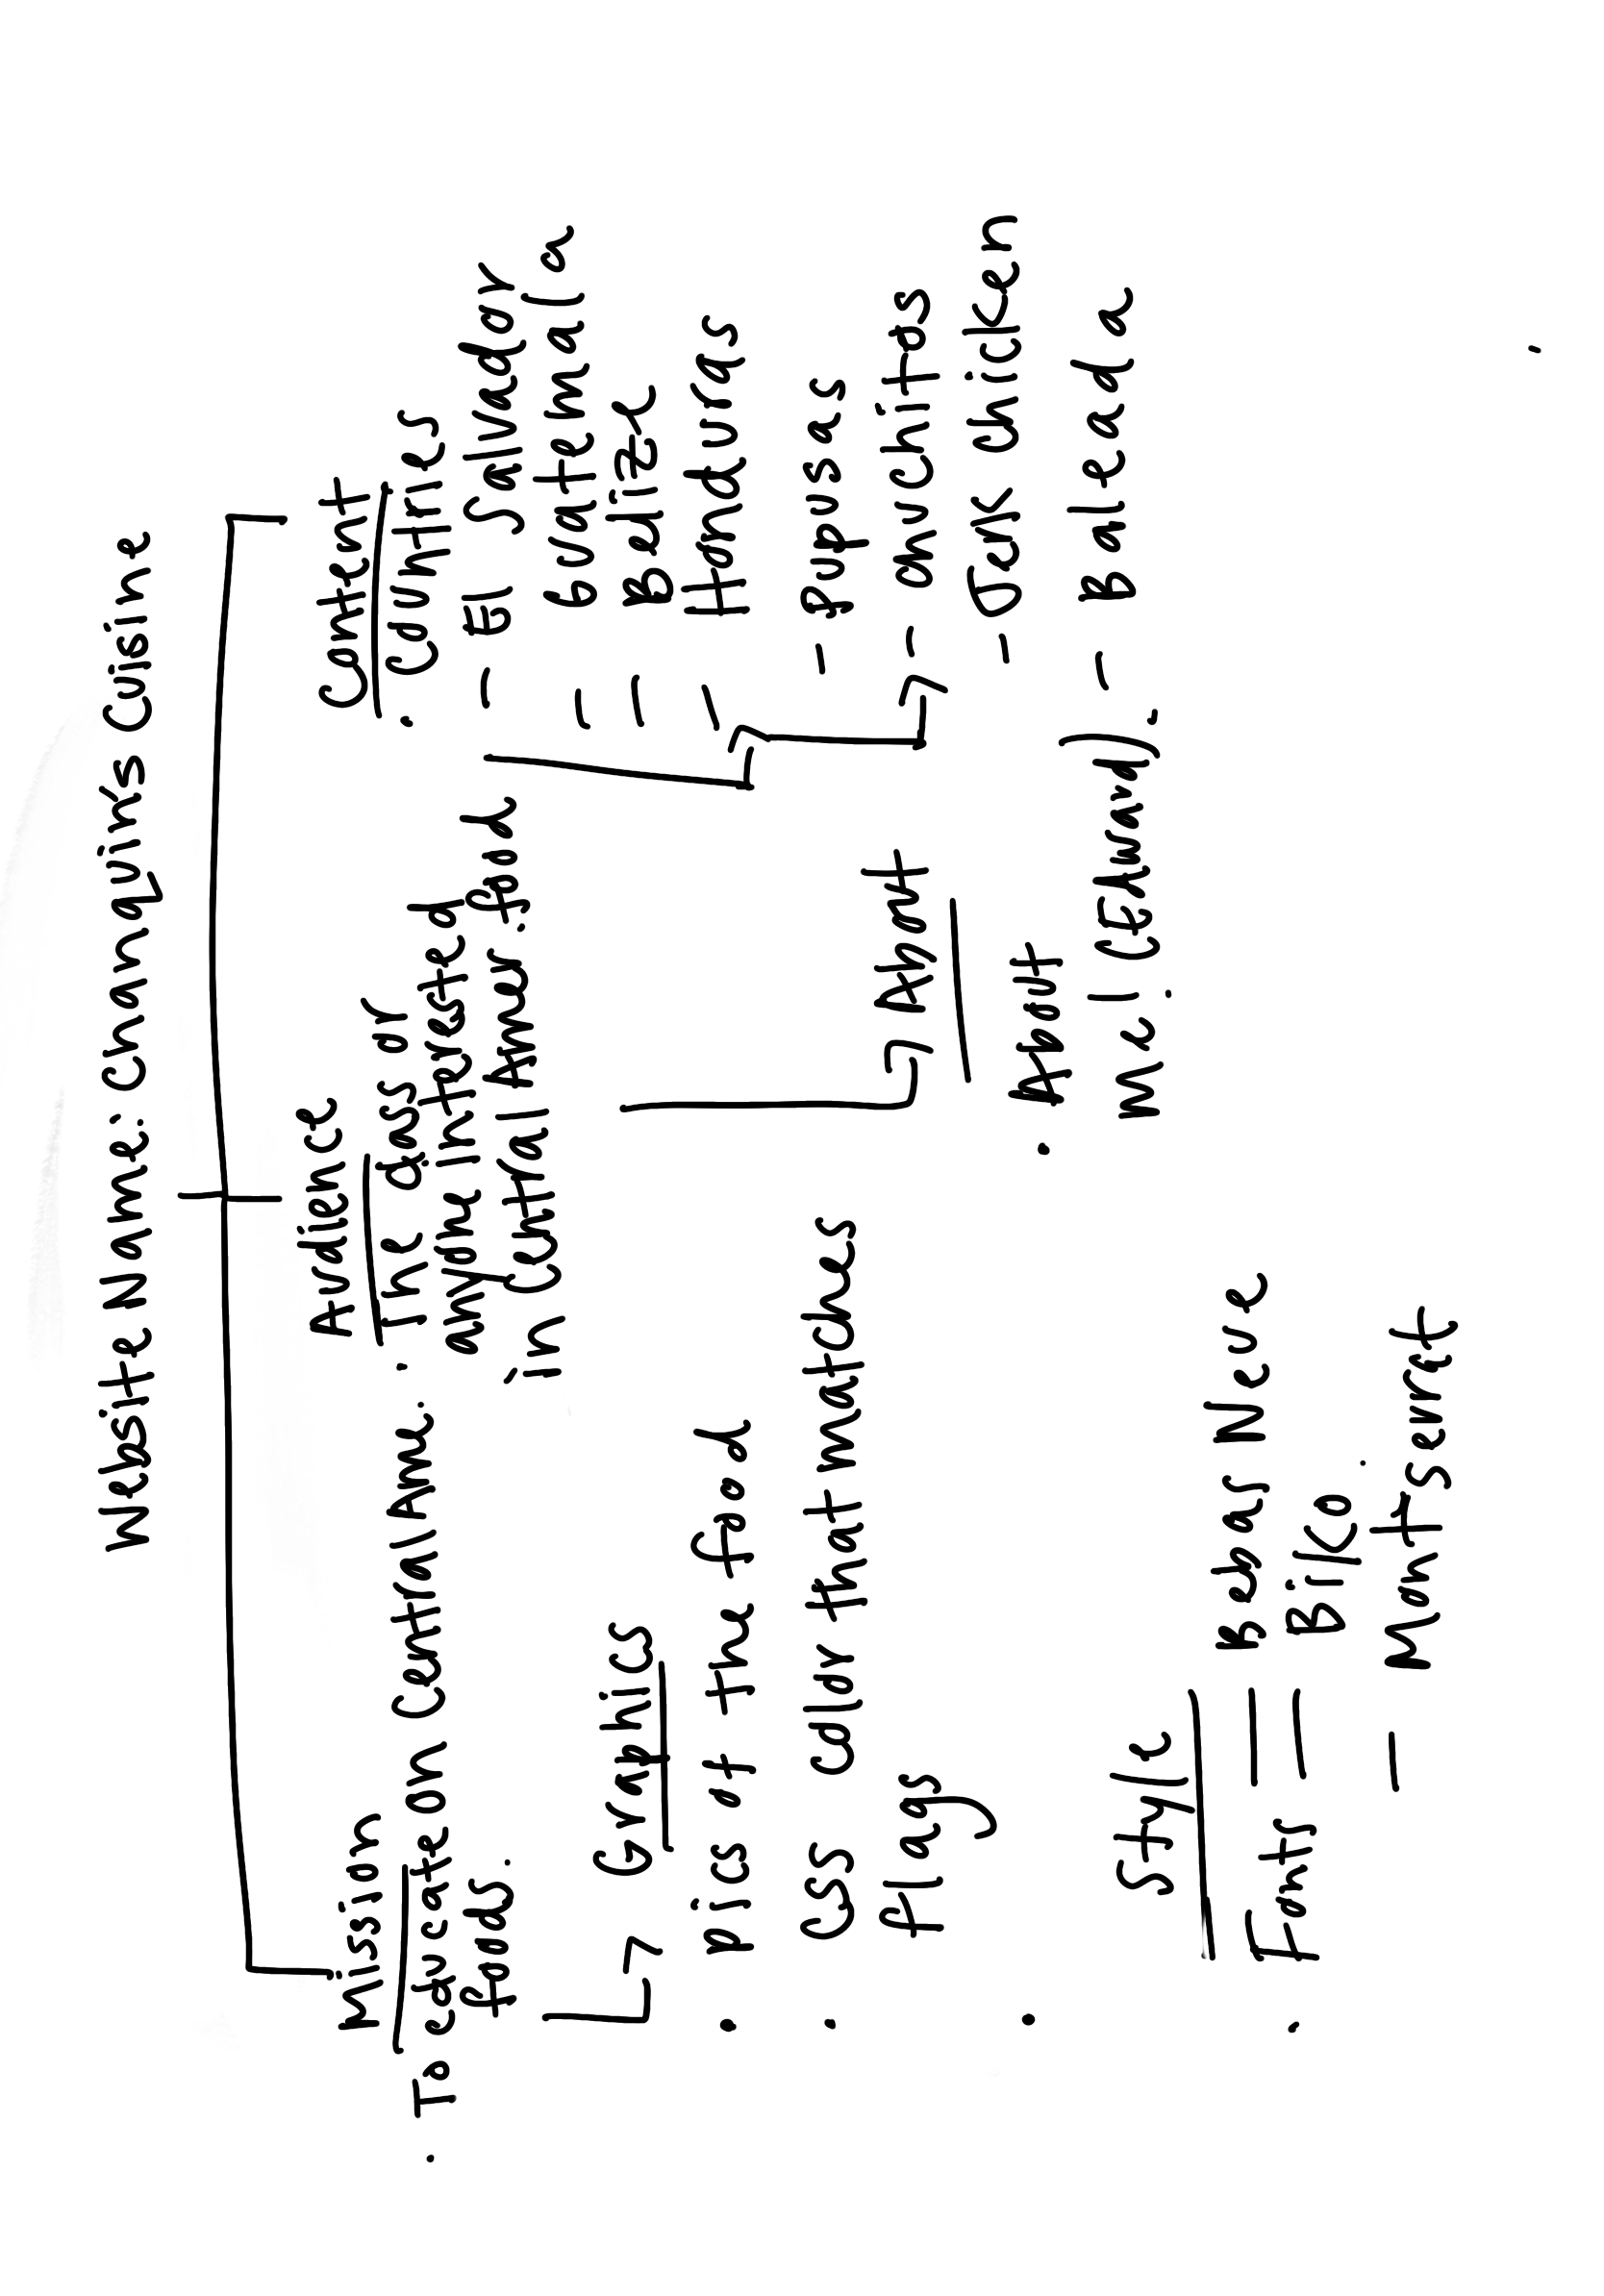 Website Name: Chanquin's Cuisine
Mission
· To educate on Central Ame.
foods.
Graphics
· pics of the food
· CSS color that matches
flags
·
Style
· Fonts = Bebas Neue
- Bilko
- Montserrat
Audience
· The class or
anyone interested
in Central Amer. food
About
· About
me! (Edward).
Content
· Countries
- El Salvador
- Guatemala
- Belize
- Honduras
- Pupusas
- chuchitos
- Jerk chicken
- Baleada